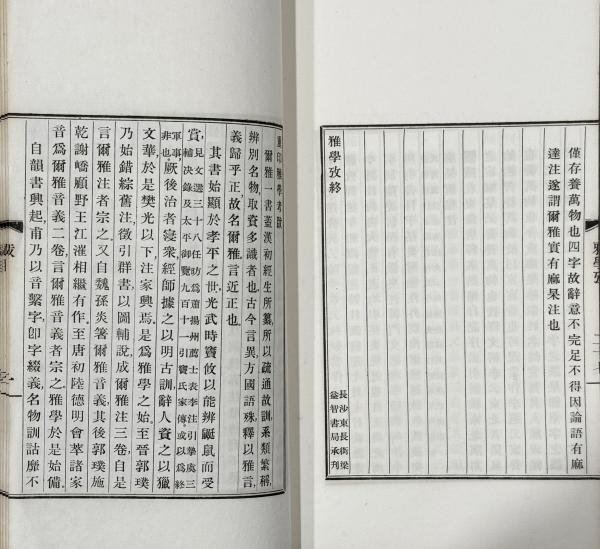 僅存養萬物也四字故辭意不完足不得因論語有麻
達注遂謂爾雅實有麻杲注也
雅學攷終
長沙東長街梁
益智書局承刊
重印雅學考跋
爾雅一書蓋漢初經生所纂，所以疏通故訓，系類繁稱，
辨別名物，取資多識者也，古今言異，方國語殊，釋以雅言，
義歸乎正，故名爾雅，言近正也，
其書始顯於孝平之世，光武時竇攸以能辨鼮鼠而受
賞，見文選三十八任昉爲蕭揚州薦士表李注引摯虞三輔決錄及太平御覽九百十一引竇氏家傳，或以爲終
軍事，非也，厥後治者寖衆，經師據之以明古訓，辭人資之以獵
文華，於是樊光以下，注家興焉，是爲雅學之始，至晉郭璞
乃始錯綜舊注，徵引群書，以圖輔說，成爾雅注三卷，自是
言爾雅注者宗之，又自魏孫炎箸爾雅音義，其後郭璞施
乾謝嶠顧野王江漼相繼有作，至唐初陸德明會萃諸家
音爲爾雅音義二卷，言爾雅音義者宗之，雅學於是始備，
自韻書興起，甫乃以音繫字，卽字綴義，名物訓詁，靡不